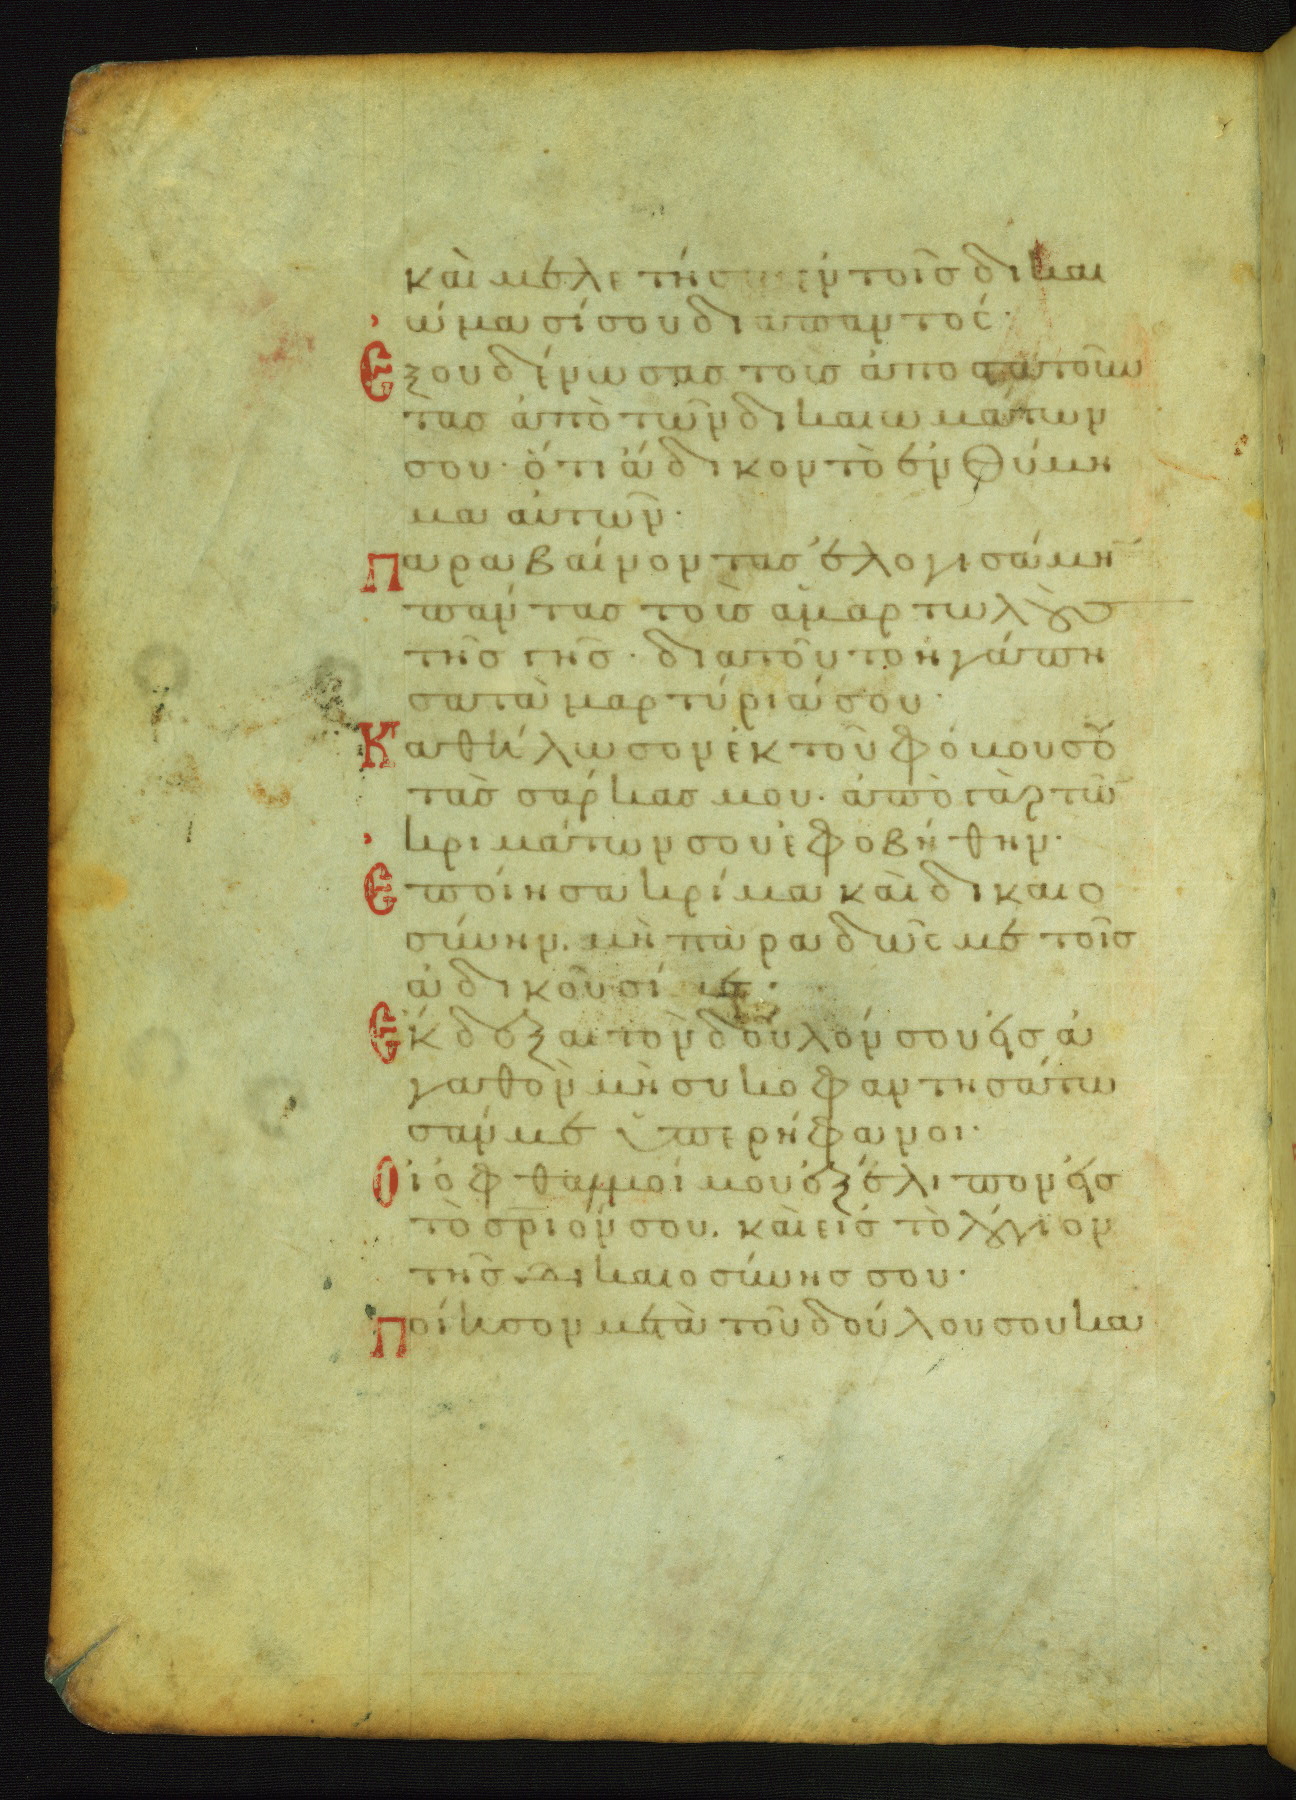 καὶ μελετήσω ἐν τοῖς δικαι
ώμασί σου διαπαντός·
Ἐξουδένωσας τοὺς ἀποστατοῦν
τας ἀπὸ τῶν δικαιωμάτων
σου· ὅτι ἄδικον τὸ ἐνθύμη
μα αὐτῶν·
Παραβαίνοντας ἐλογισάμην
πάντας τοὺς ἁμαρτωλοὺς
τῆς γῆς· διατοῦτο ἠγάπη
σα τὰ μαρτύριά σου·
Καθήλωσον ἐκ τοῦ φόβου σου
τὰς σάρκας μου· ἀπὸ γὰρ τῶν
κριμάτων σου ἐφοβήθην·
Ἐποίησα κρίμα καὶ δικαιο
σύνην. μὴ παραδῷς με τοῖς
ἀδικοῦσί με·
Ἔκδεξαι τὸν δοῦλόν σου εἰς ἀ
γαθὸν μὴ συκοφαντησάτω
σάν με ὑπερήφανοι·
Οἱ ὀφθαλμοί μου ἐξέλιπον εἰς
τὸ σρ̅ιόν σου. καὶ εἰς τὸ λόγιον
τῆς δικαιοσύνης σου·
Ποίησον μετὰ τοῦ δούλου σου κα